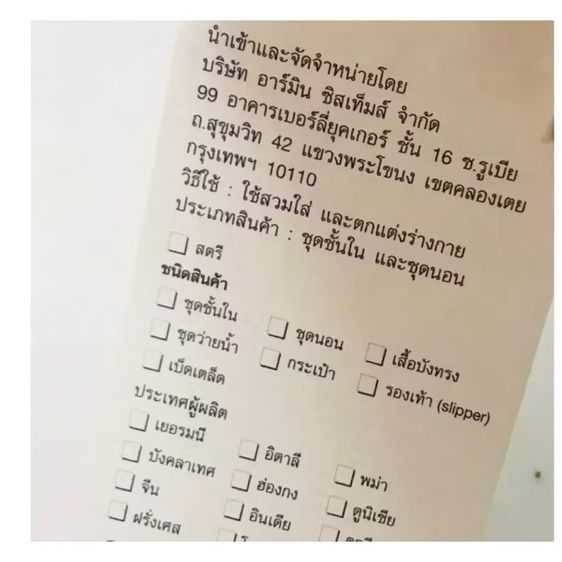 นำเข้าและจัดจำหน่ายโดย
บริษัท อาร์มิน ซิสเท็มส์ จำกัด
99 อาคารเบอร์ลี่ยุคเกอร์ ชั้น 16 ซ.รูเบีย
ถ.สุขุมวิท 42 แขวงพระโขนง เขตคลองเตย
กรุงเทพฯ 10110
วิธีใช้ : ใช้สวมใส่ และตกแต่งร่างกาย
ประเภทสินค้า : ชุดชั้นใน และชุดนอน
สตรี
ชนิดสินค้า
ชุดชั้นใน ชุดนอน เสื้อบังทรง
ชุดว่ายน้ำ กระเป๋า รองเท้า (slipper)
เบ็ดเตล็ด
ประเทศผู้ผลิต
เยอรมนี อิตาลี พม่า
บังคลาเทศ ฮ่องกง ตูนิเซีย
จีน อินเดีย
ฝรั่งเศส